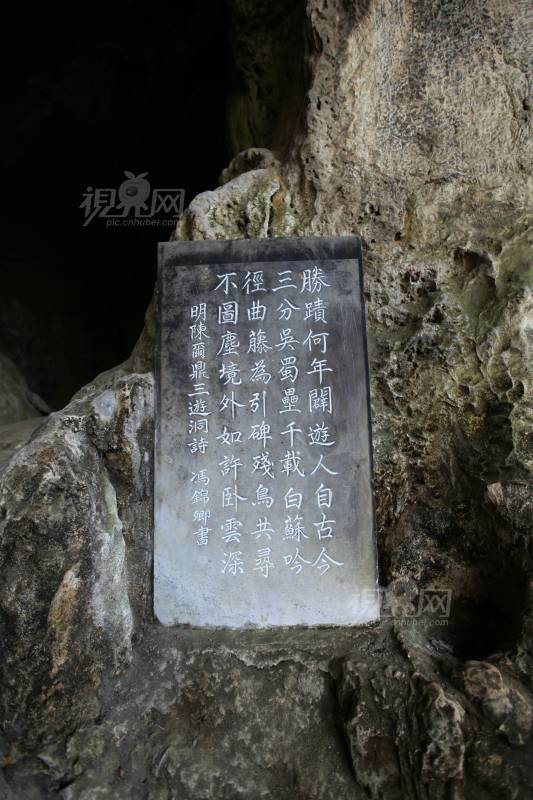 勝蹟何年闢遊人自古今
三分吳蜀壘千載白蘇吟
徑曲藤為引碑殘鳥共尋
不圖塵境外如許卧雲深
明陳爾鼎三遊洞詩 馮錦卿書
視見网
pic.cnhubei.com
視見网
pic.cnhubei.com